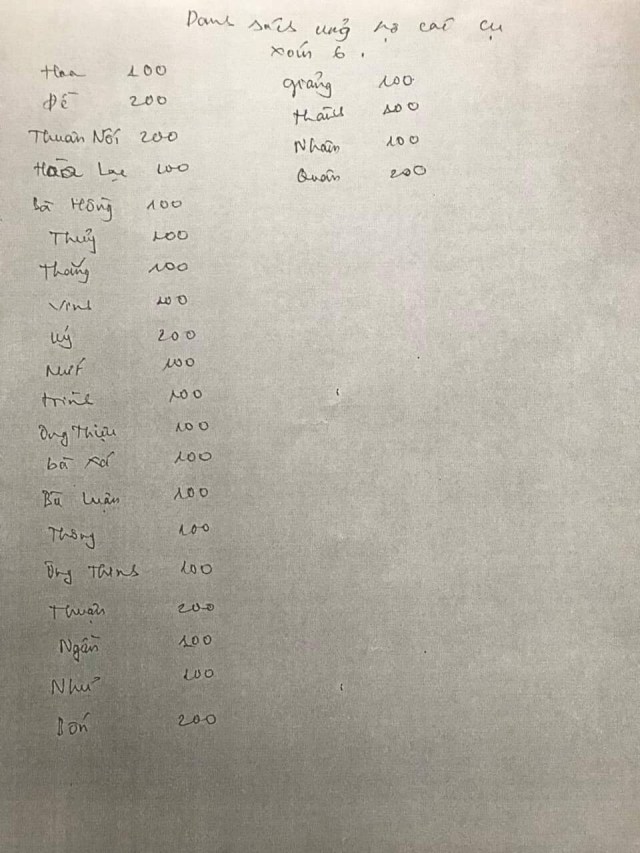 Danh sách ủng hộ các cụ
xóm 6.
Hoa 100
Đề 200
Thuân Nối 200
Lạc 100
Bà Hồng 100
Thuỷ 100
Thắng 100
Vinh 100
Uý 200
100
trinh 100
Ông Thiệu 100
bà Xó 100
Bà Luận 100
Thông 100
Ông Thinh 100
Thuận 200
Ngân 100
Như 100
Bốn 200
Quảng 100
thành 100
Nhân 100
Quân 200